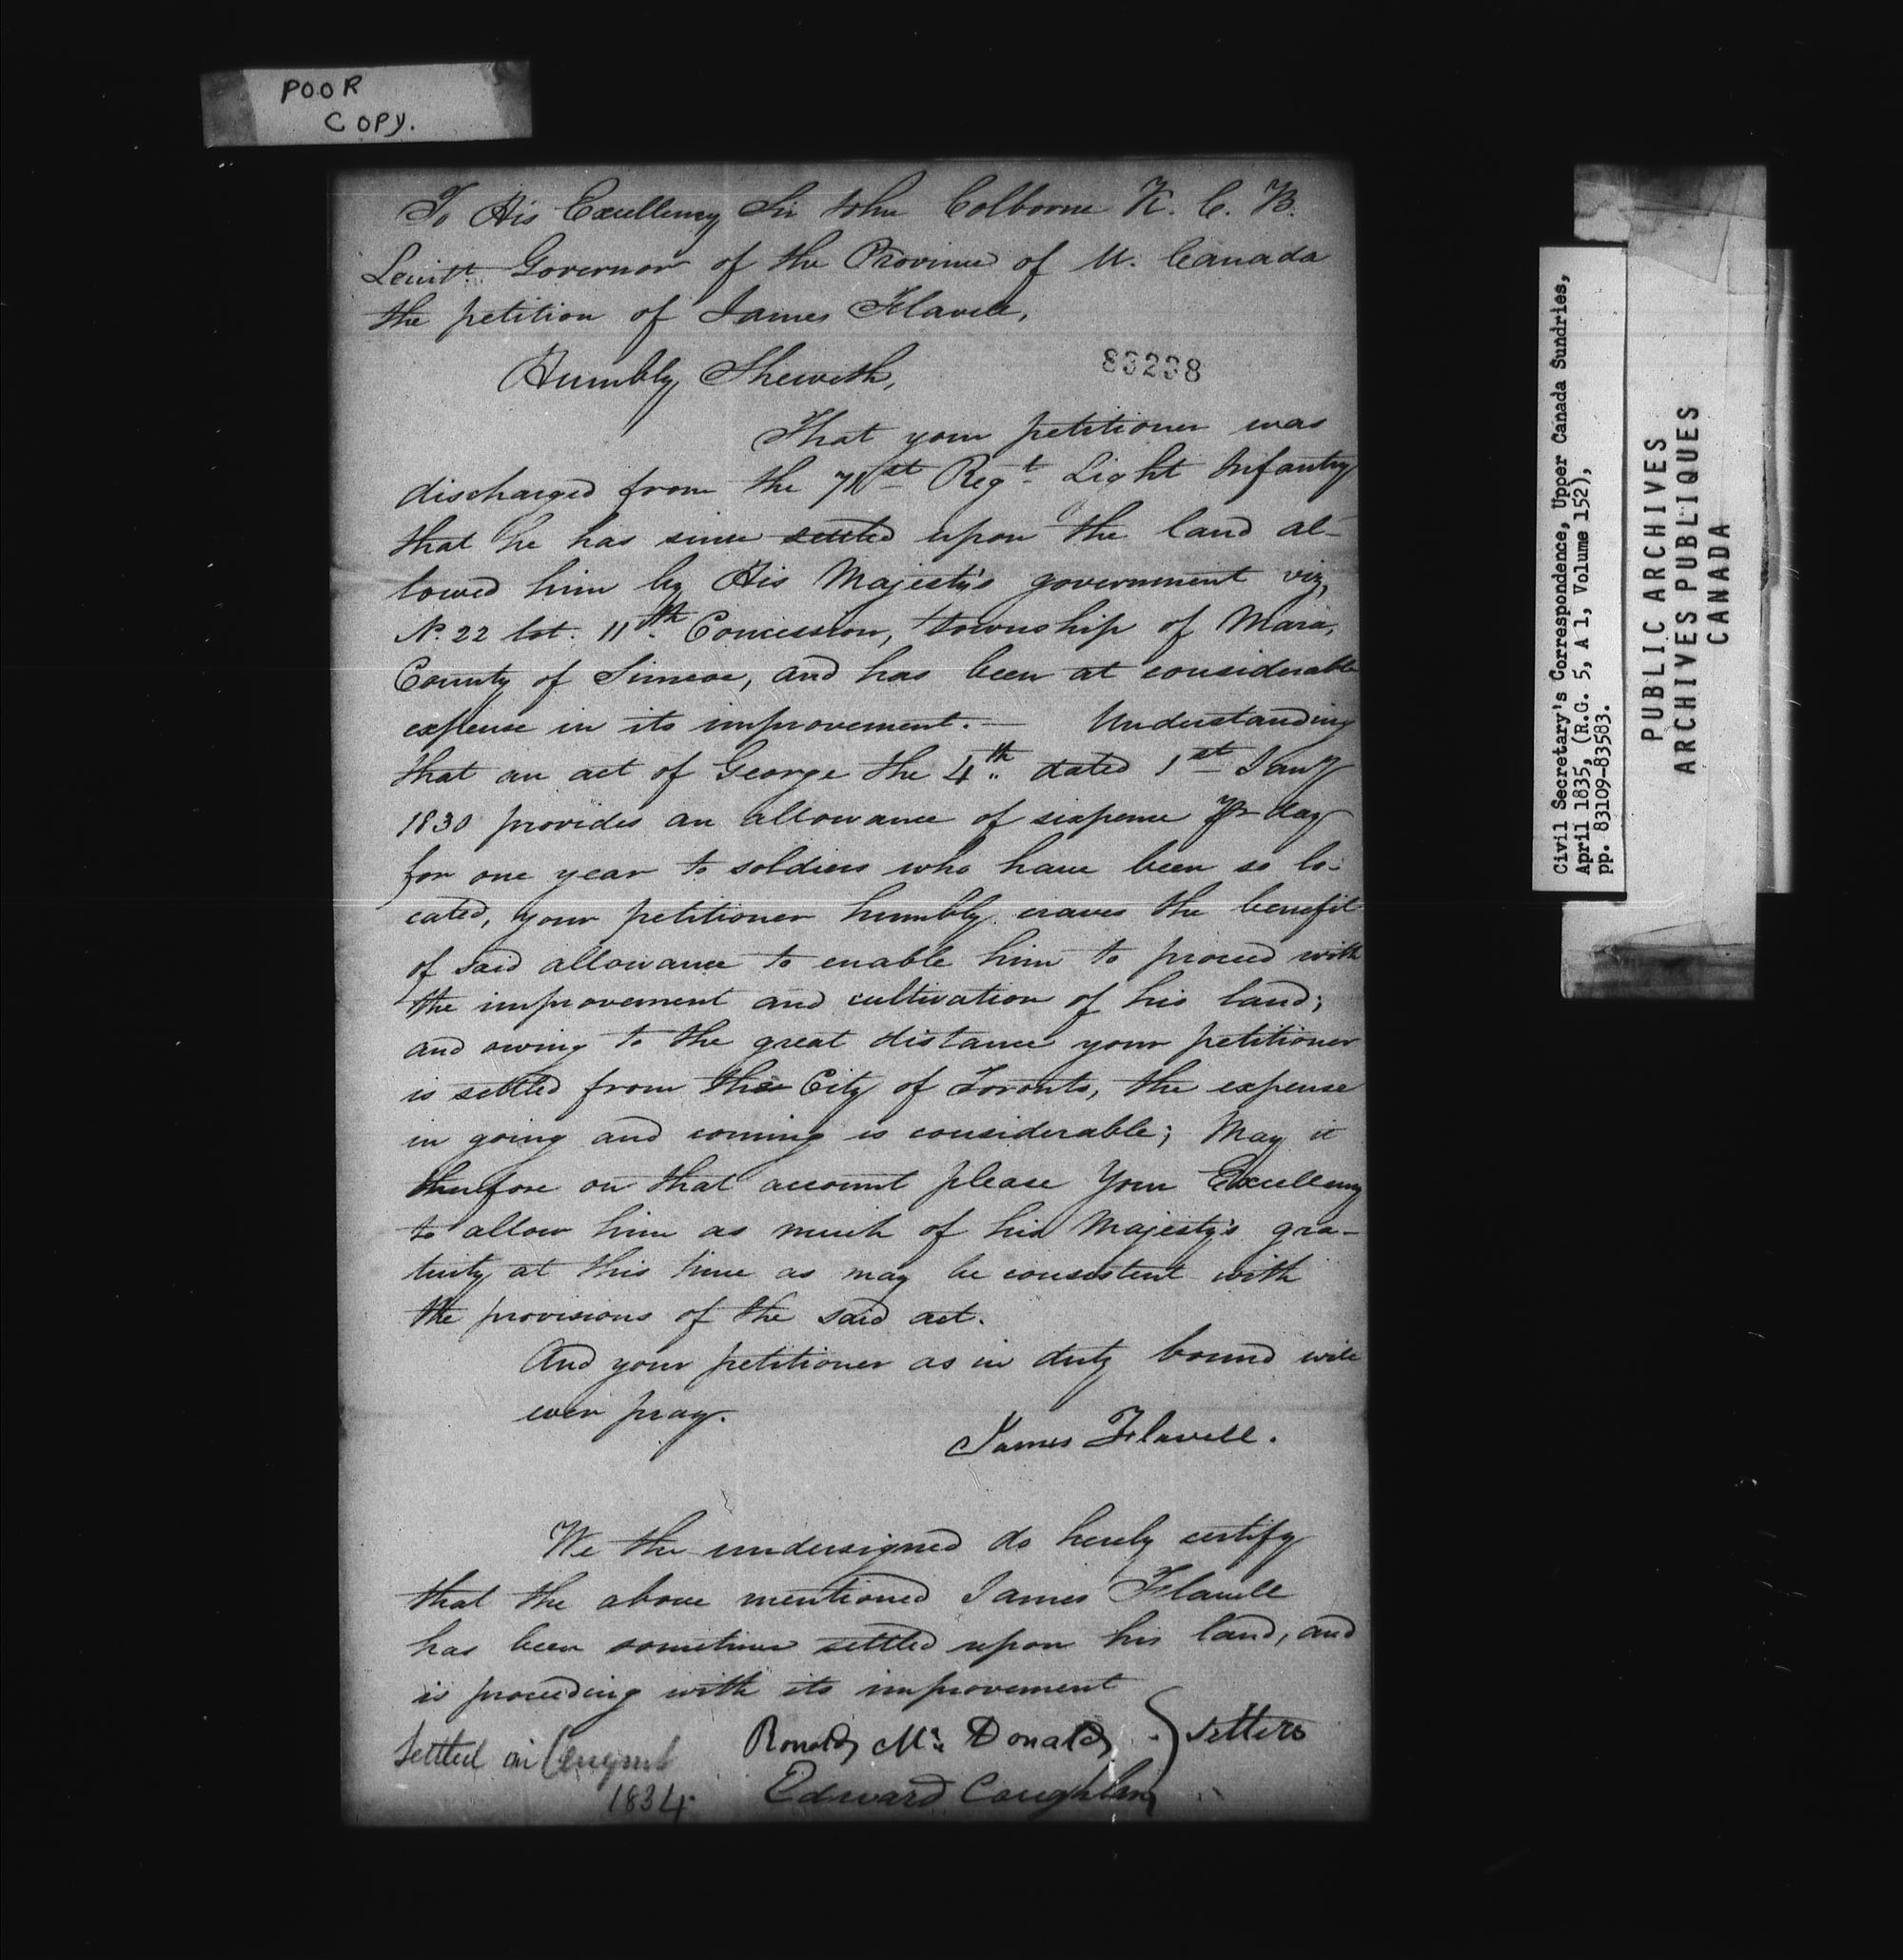 POOR
COPY.
To His Excellency Sir John Colborne K. C. B.
Leuitt. Governor of the Province of U. Canada
the petition of James Flavell,
Humbly Sheweth,
83238
That your petitioner was
discharged from the 71st Regt. Light Infantry
that he has since settled upon the land al-
lowed him by His Majesty's government viz,
No. 22 lot. 11th. Concession, township of Mara,
County of Simcoe, and has been at considerable
expense in its improvement. — Understanding
that an act of George the 4th. dated 1st Jany
1830 provides an allowance of sixpence pr day
for one year to soldiers who have been so lo-
cated, your petitioner humbly craves the benefit
of said allowance to enable him to proceed with
the improvement and cultivation of his land;
and owing to the great distance your petitioner
is settled from the City of Toronto, the expense
in going and coming is considerable; May it
therefore on that account please Your Excellency
to allow him as much of his Majesty's gra-
tuity at this time as may be consistent with
the provisions of the said act.
And your petitioner as in duty bound will
ever pray.
James Flavell.
We the undersigned do hereby certify
that the above mentioned James Flavell
has been sometime settled upon his land, and
is proceeding with its improvement
Ronald Mc. Donald } Setters
Edward Coughlan
Settled in August
1834
Civil Secretary's Correspondence, Upper Canada Sundries,
April 1835, (R.G. 5, A 1, Volume 152),
pp. 83109-83583.
PUBLIC ARCHIVES
ARCHIVES PUBLIQUES
CANADA